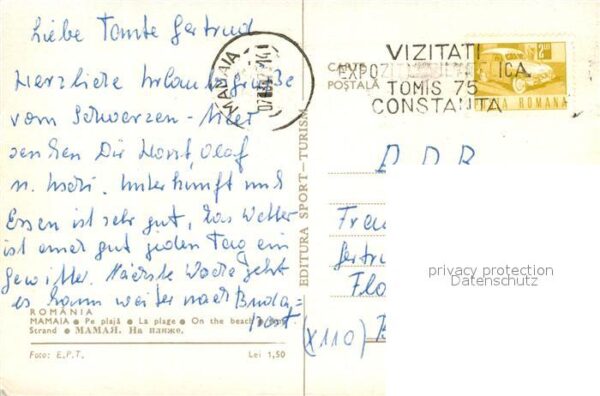 Liebe Tante Gertrud
Herzliche Urlaubsgrüße
vom Schwarzen-Meer
senden Dir Horst, Olaf
u. Unterkunft und
Essen ist sehr gut, das Wetter
ist auch gut jeden Tag ein
Gewitter. Nächste Woche geht
es dann weiter nach Buda=
pest.
ROMÂNIA
MAMAIA ● Pe plajă ● La plage ● On the beach ● Am
Strand ● МАМАЯ. На пляже.
Foto: E.P.T.
Lei 1,50
EDITURA SPORT-TURISM
MAMAIA
CARTE
POȘTALĂ
VIZITAȚI
EXPOZIȚIA FILATELICA
TOMIS 75
CONSTANTA
POSTA ROMANA
DDR
Frau
Gertru
Flo
(X110)
privacy protection
Datenschutz